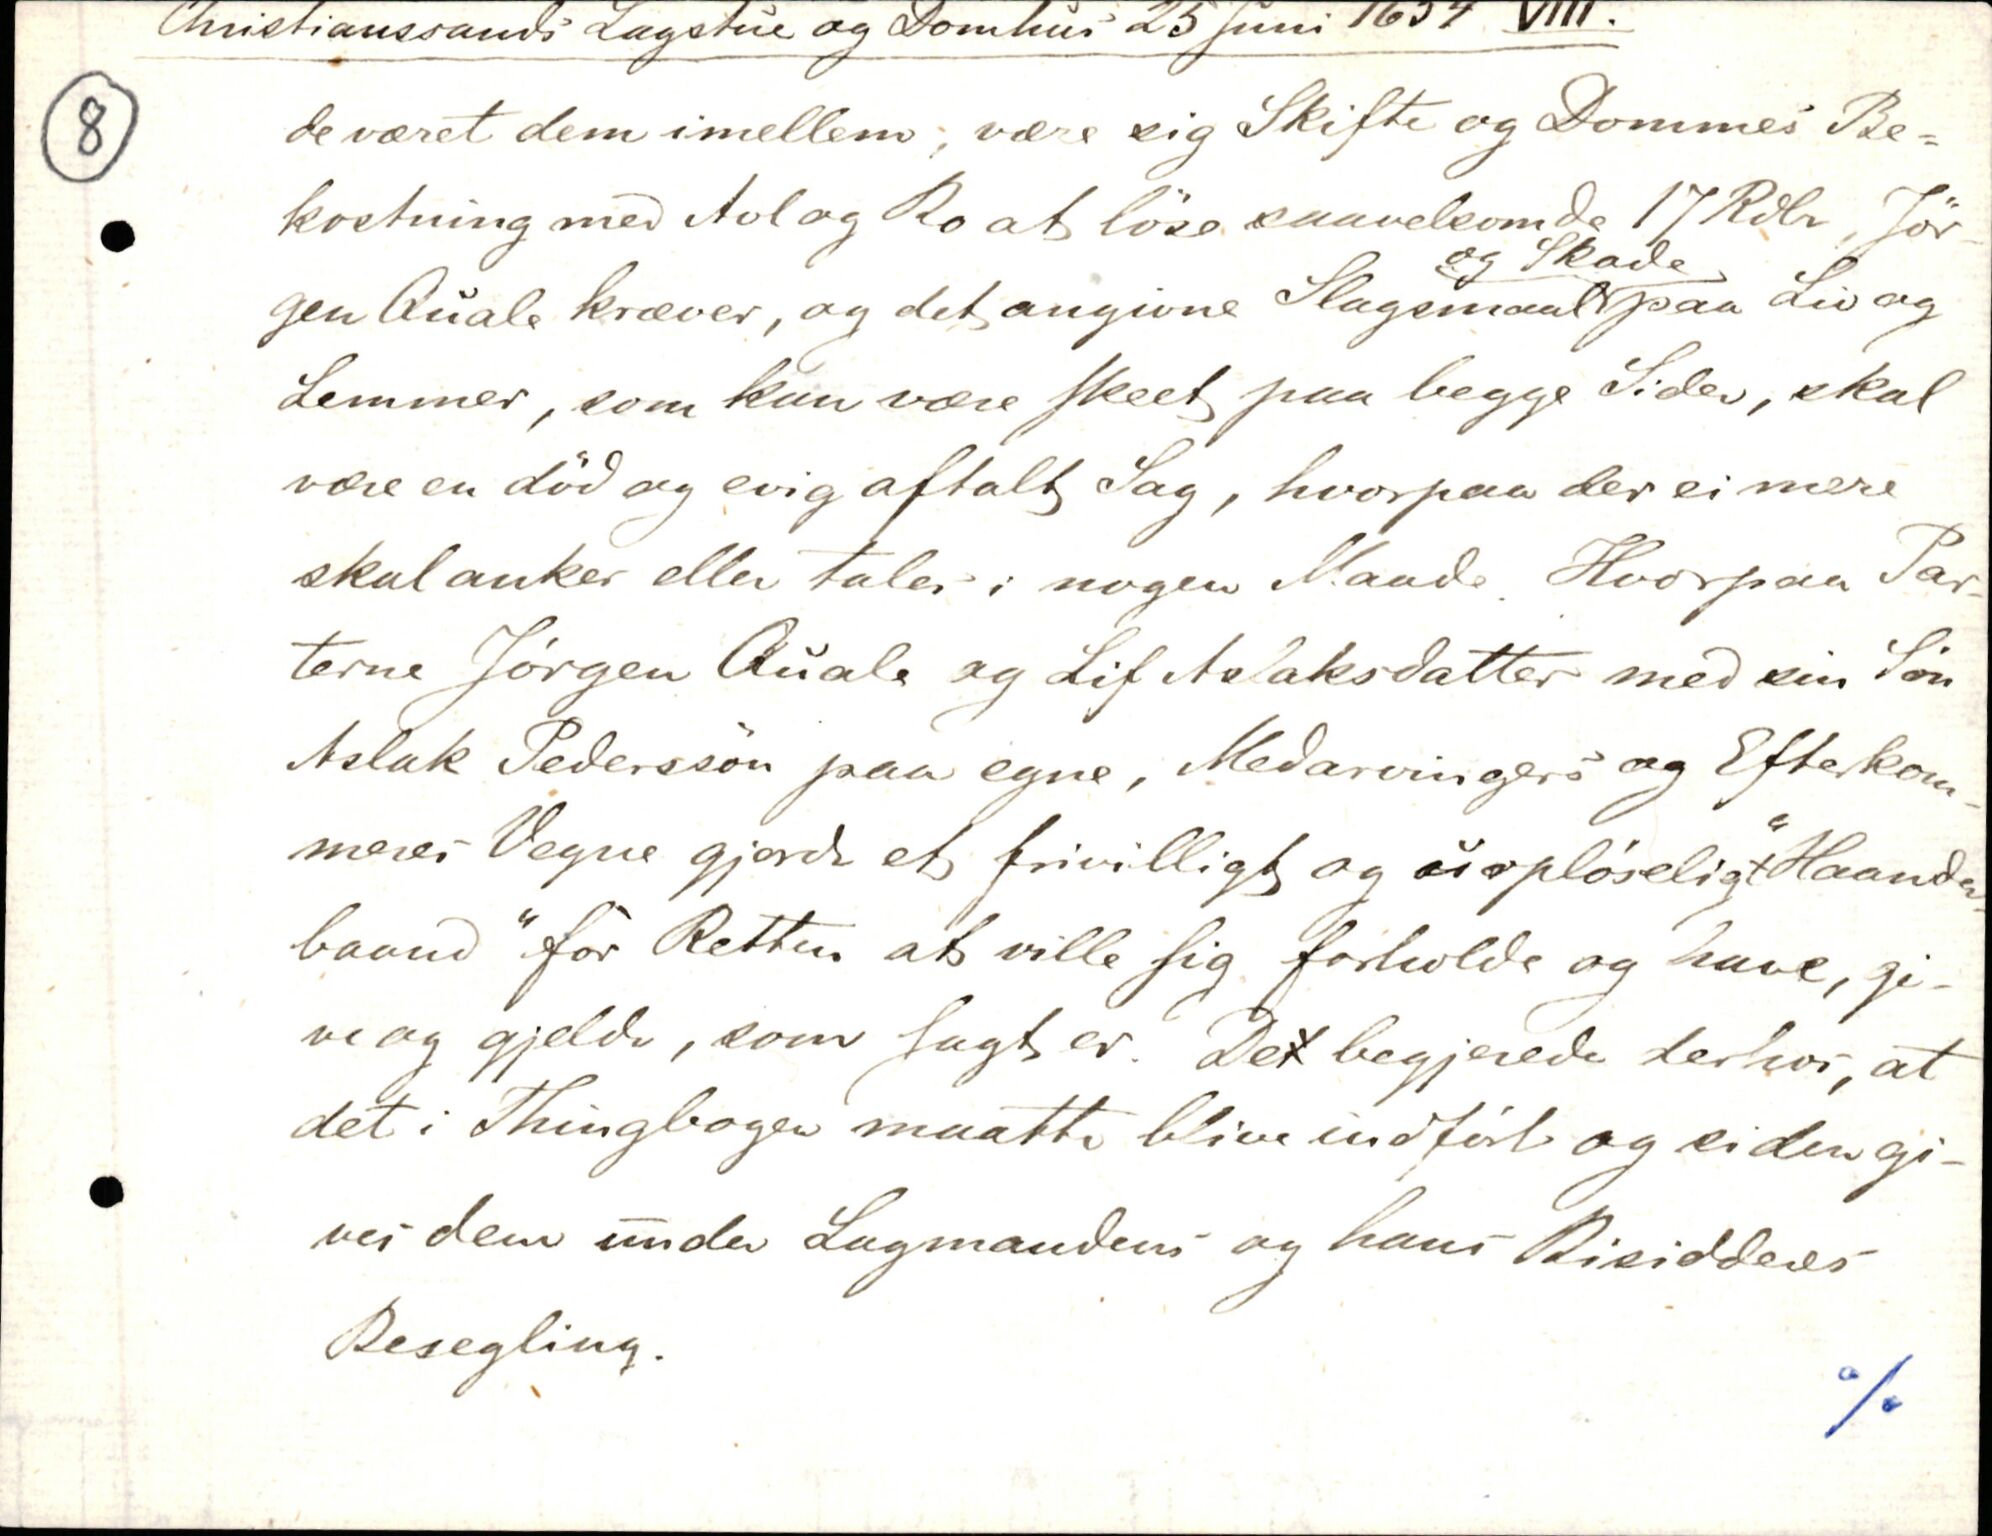 Christianssands Lagstue og Domhus 25 Juni 1654 VIII.
8
de været dem imellem, være sig Skifte og Dommes Be-
kostning med Avl og Ro at löse saavelsom de 17 Rdlr, Jör-
og Skade
gen Quale kræver, og det angivne Slagsmaal paa Liv og
Lemmer, som kan være skeet paa begge Sider, skal
være en död og evig aftalt Sag, hvorpaa der ei mere
skal ankes eller tales i nogen Maade. Hvorpaa Par-
terne Jörgen Quale og Lif Aslaksdatter med sin Sön
Aslak Pederssön paa egne, Medarvingers og Efterkom-
meres Vegne gjorde et frivilligt og uoplöseligt "Haande-
baand" for Retten at ville sig forholde og have, gi-
ve og gjelde, som sagt er. De begjerede derhos, at
det i Thingbogen maatte blive indfört og siden gi-
ves dem under Lagmandens og hans Bisidderes
Besegling.
%